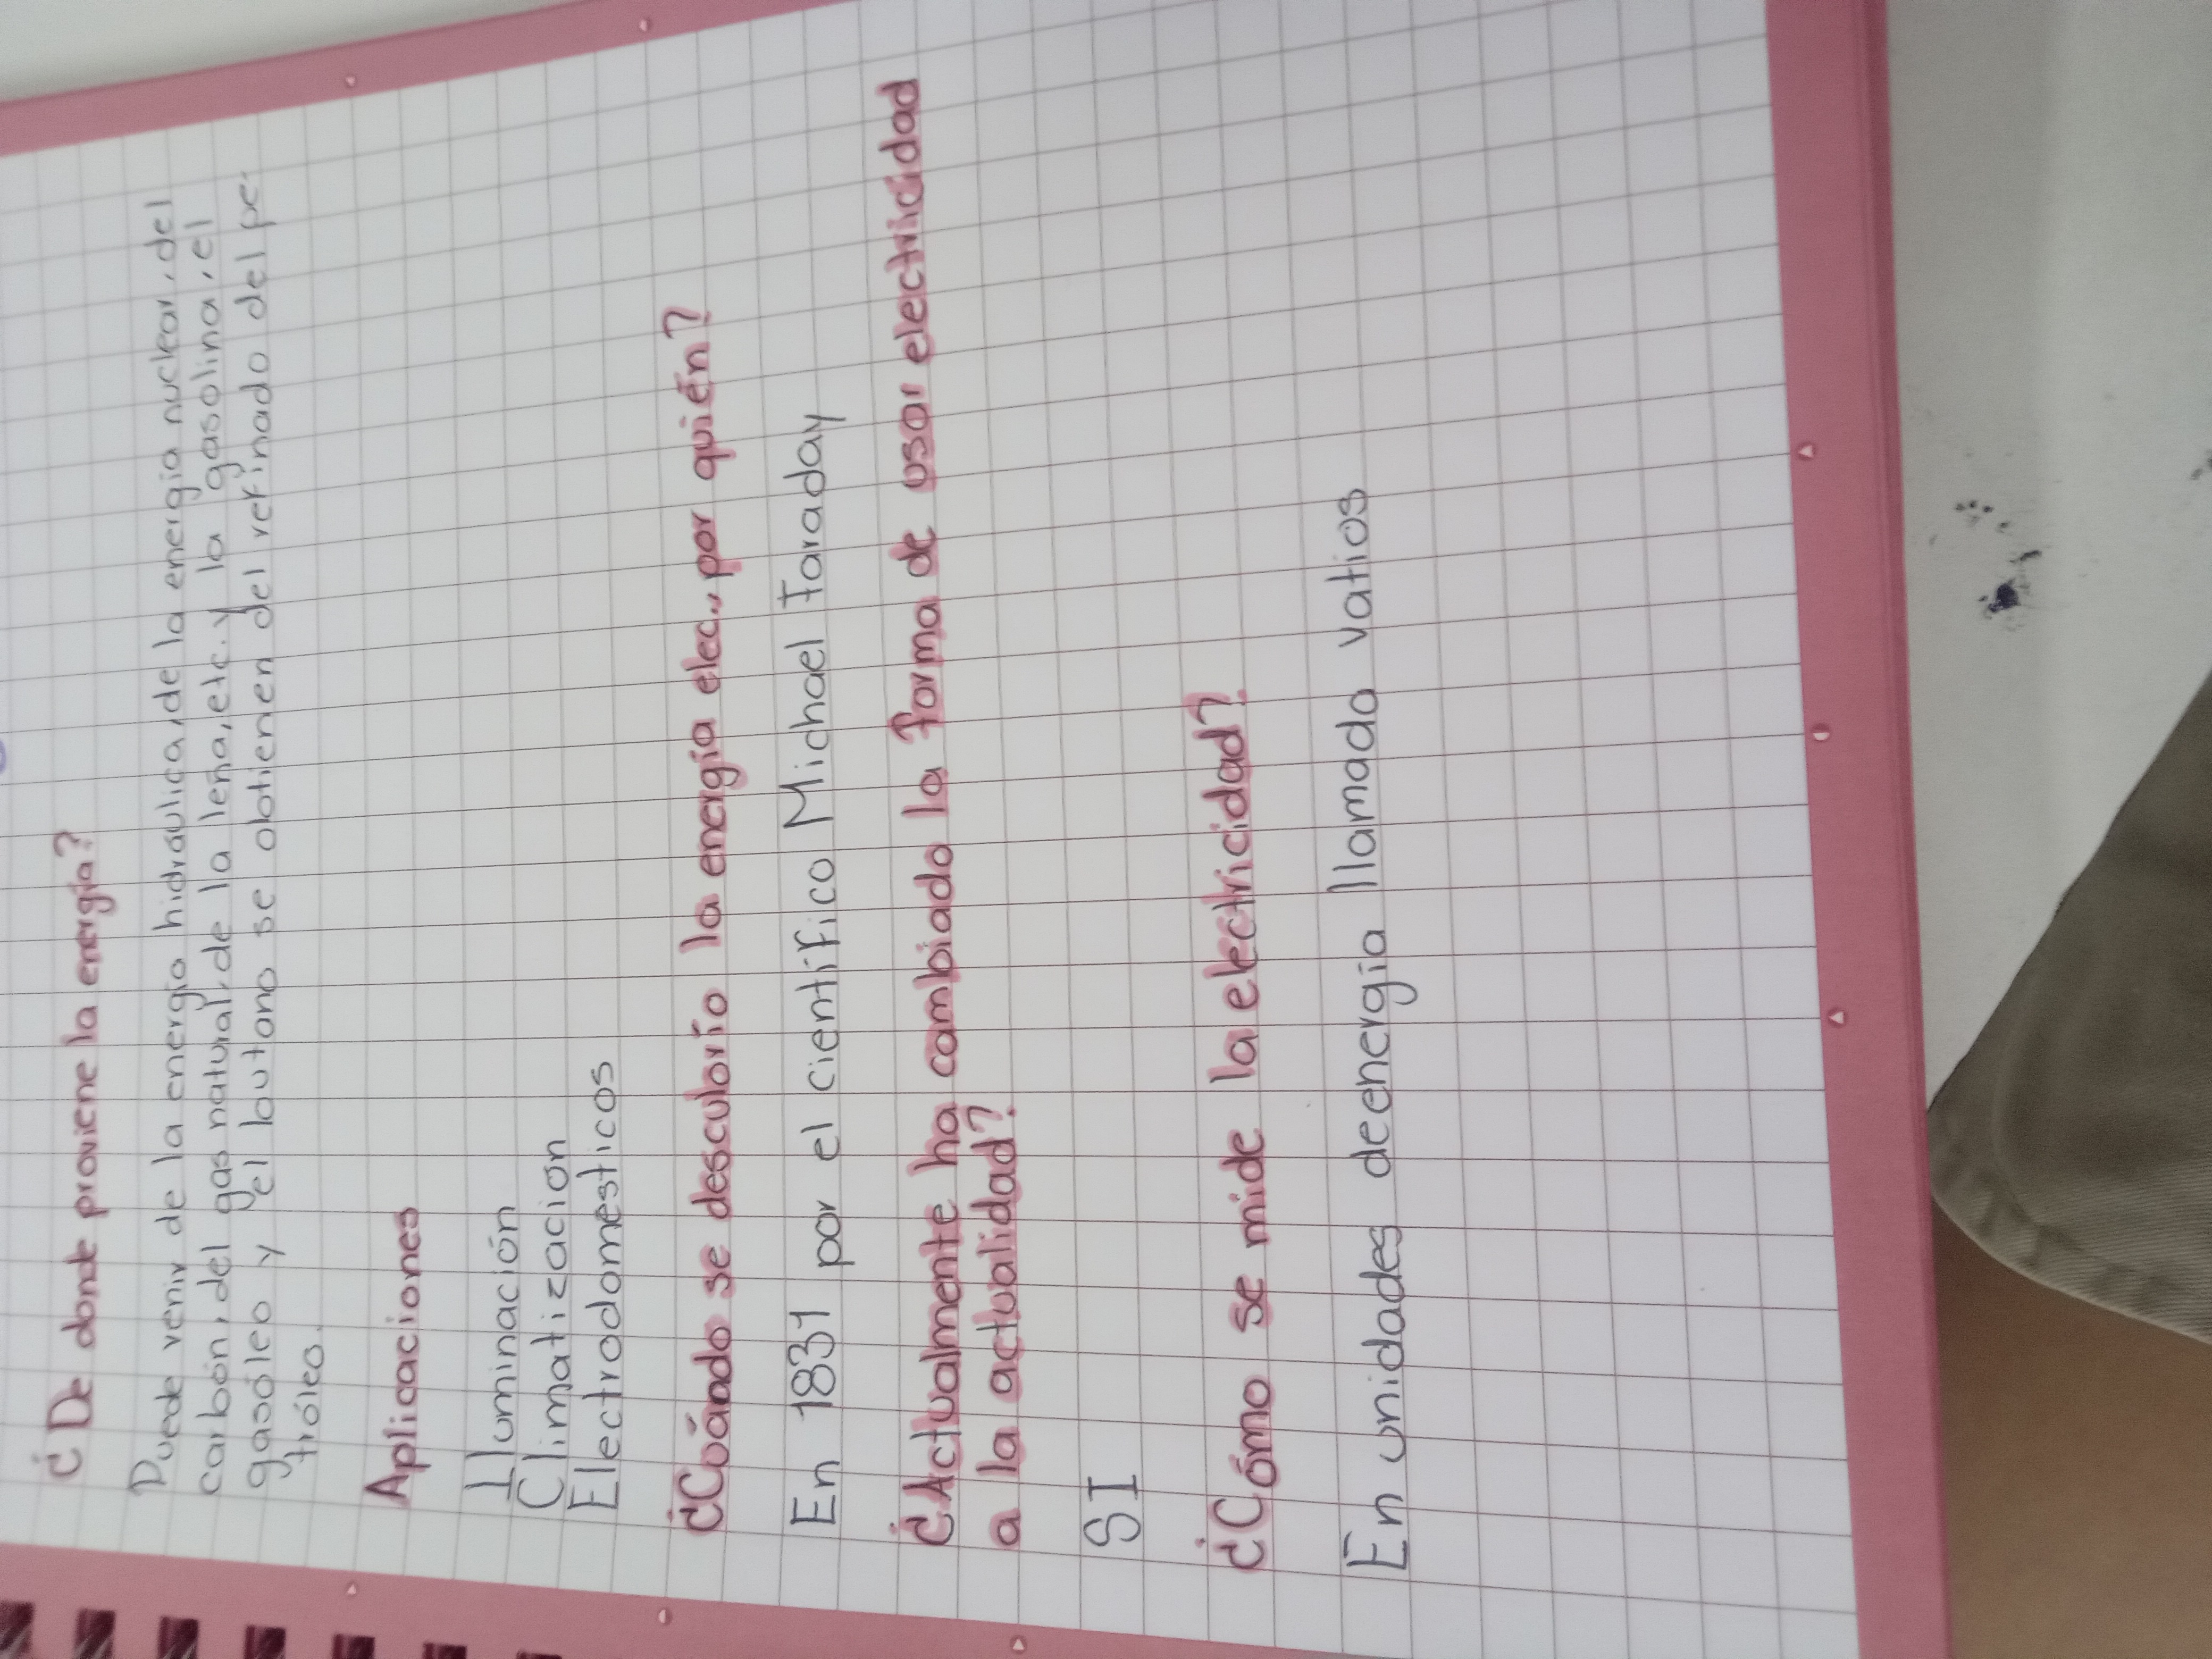 ¿De donde proviene la energía?
Puede venir de la energía hidráulica, de la energía nuclear, del
carbón, del gas natural, de la leña, etc. y la gasolina, el
gasóleo y el butano se obtienen del refinado del pe-
tróleo.
Aplicaciones
Iluminación
Climatizacion
Electrodomesticos
¿Cuándo se descubrío la energía elec., por quién?
En 1831 por el cientifico Michael Faraday
¿Actualmente ha cambiado la forma de usar electricidad
a la actualidad?
SI
¿Cómo se mide la electricidad?
En unidades de energía llamado vatios